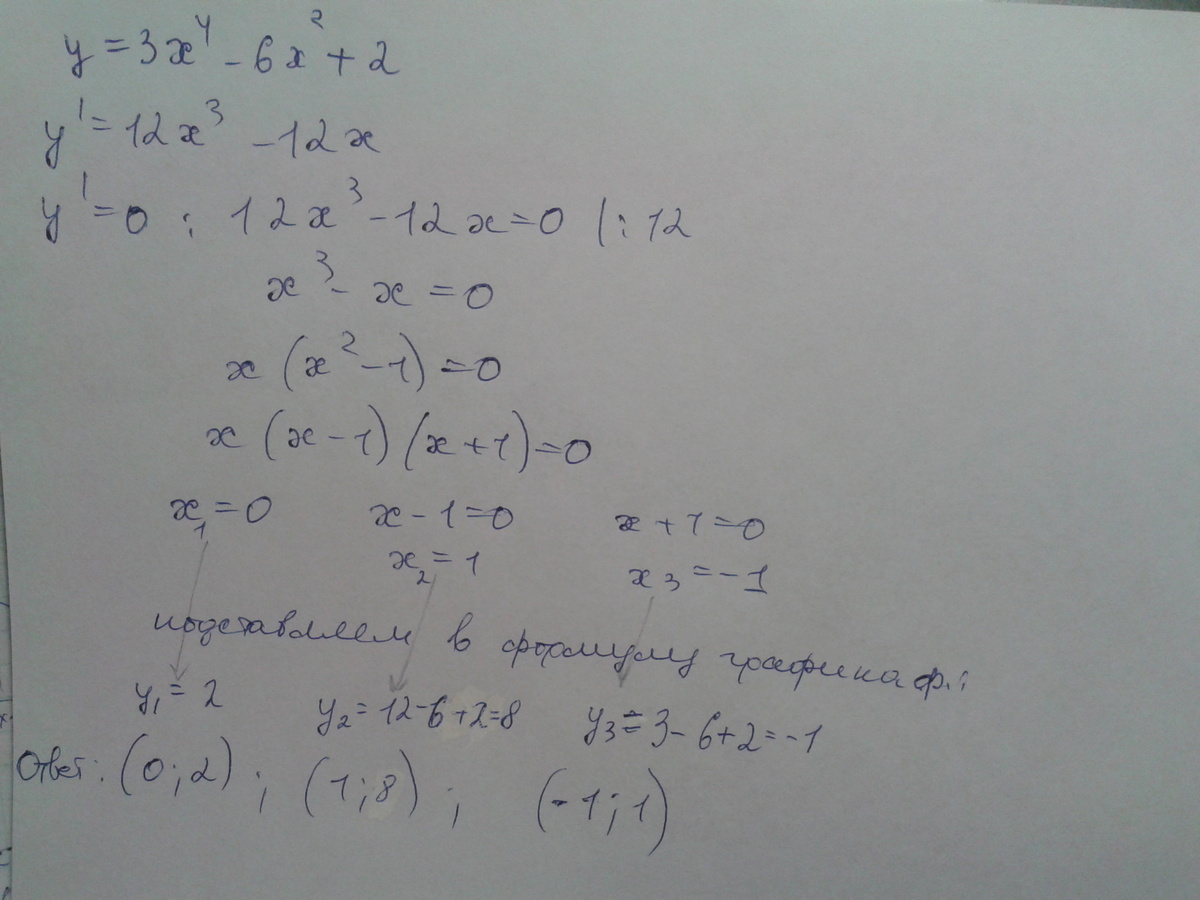 y = 3x⁴ - 6x² + 2
y' = 12x³ - 12x
y' = 0 : 12x³ - 12x = 0 |: 12
x³ - x = 0
x (x² - 1) = 0
x (x - 1) (x + 1) = 0
x₁ = 0 x - 1 = 0 x + 1 = 0
x₂ = 1 x₃ = -1
подставляем в формулу графика ф.:
y₁ = 2 y₂ = 12 - 6 + 2 = 8 y₃ = 3 - 6 + 2 = -1
Ответ: (0; 2) ; (1; 8) ; (-1; 1)